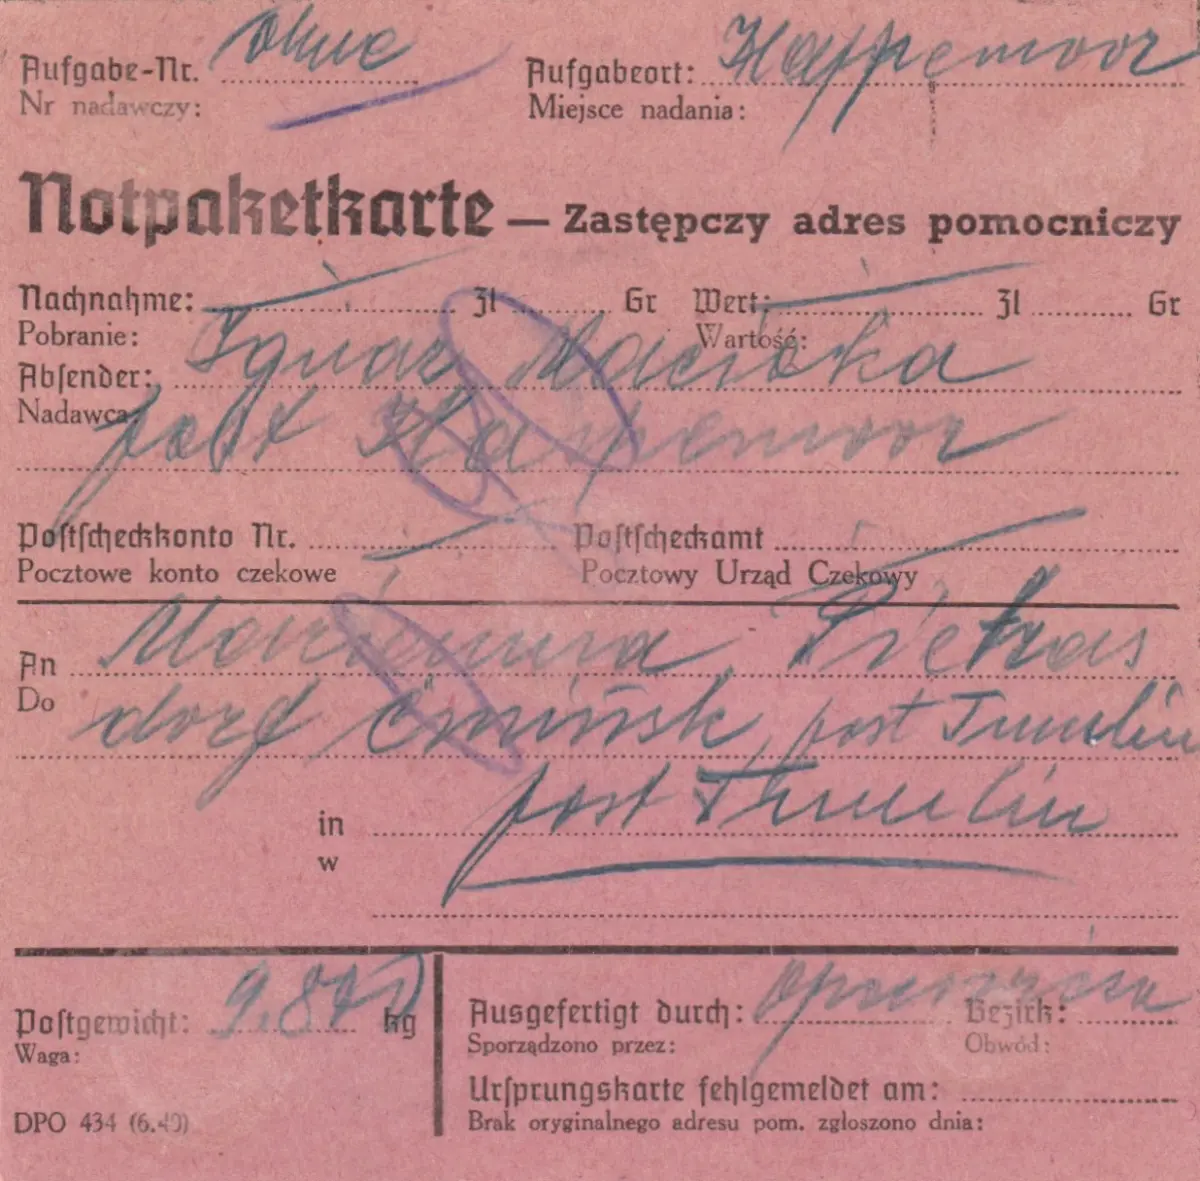 Aufgabe-Nr. ohne Aufgabeort: Happemoor
Nr nadawczy: Miejsce nadania:
Notpaketkarte — Zastępczy adres pomocniczy
Nachnahme: Zl Gr Wert: Zl Gr
Pobranie: Wartość:
Absender: Ignaz
Nadawca:
post
Postscheckkonto Nr. Postscheckamt
Pocztowe konto czekowe Pocztowy Urząd Czekowy
An Pietras
Do
dorf Ćmińsk, post Tumlin
in post Tumlin
w
Postgewicht: kg Ausgefertigt durch: Bezirk:
Waga: Sporządzono przez: Obwód:
Ursprungskarte fehlgemeldet am:
DPO 434 (6.40) Brak oryginalnego adresu pom. zgłoszono dnia: